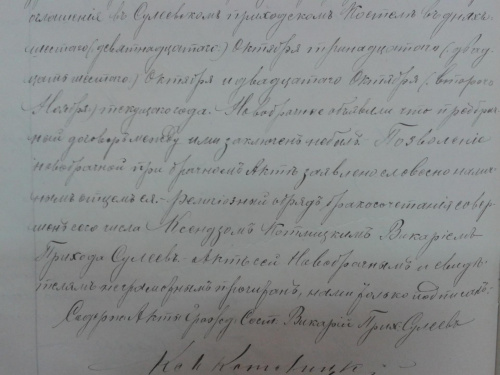 оглашеній въ Сулеевскомъ Приходскомъ Костелѣ въ дняхъ:
шестаго (девятнадцатаго) Октября тринадцатаго (двад-
цать шестаго) Октября и двадцатаго Октября (втораго
Ноября) текущаго года. Новобрачные объявили что предбрач-
ный договоръ между ими заключенъ небылъ. Позволеніе
новобрачной при брачномъ Актѣ заявлено словесно налич-
нымъ отцемъ ея. - Религіозный обрядъ бракосочетанія совер-
шенъ сего числа Ксендзомъ Котлицкимъ Викаріемъ
Прихода Сулеевъ. Актъ сей Новобрачнымъ и свидѣ-
телямъ неграмотнымъ прочитанъ, нами только подписанъ.
Содерж. Акты Гражд. Сост. Викарій Прих. Сулеевъ